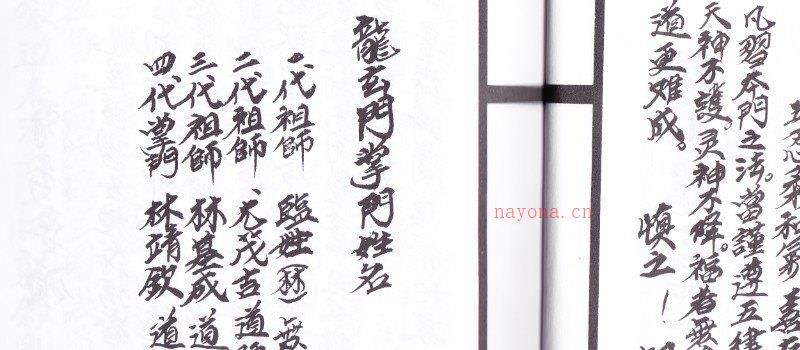 凡習本門之法。當謹遵五律
天神不護。灵神不降。福者無
道更难成。
慎之！
nayona.cn
龍玄門掌門姓名
一代祖師 臨姓(林)無
二代祖師 尤茂吉 道
三代祖師 林基成 道
四代掌門 林靖欽 道